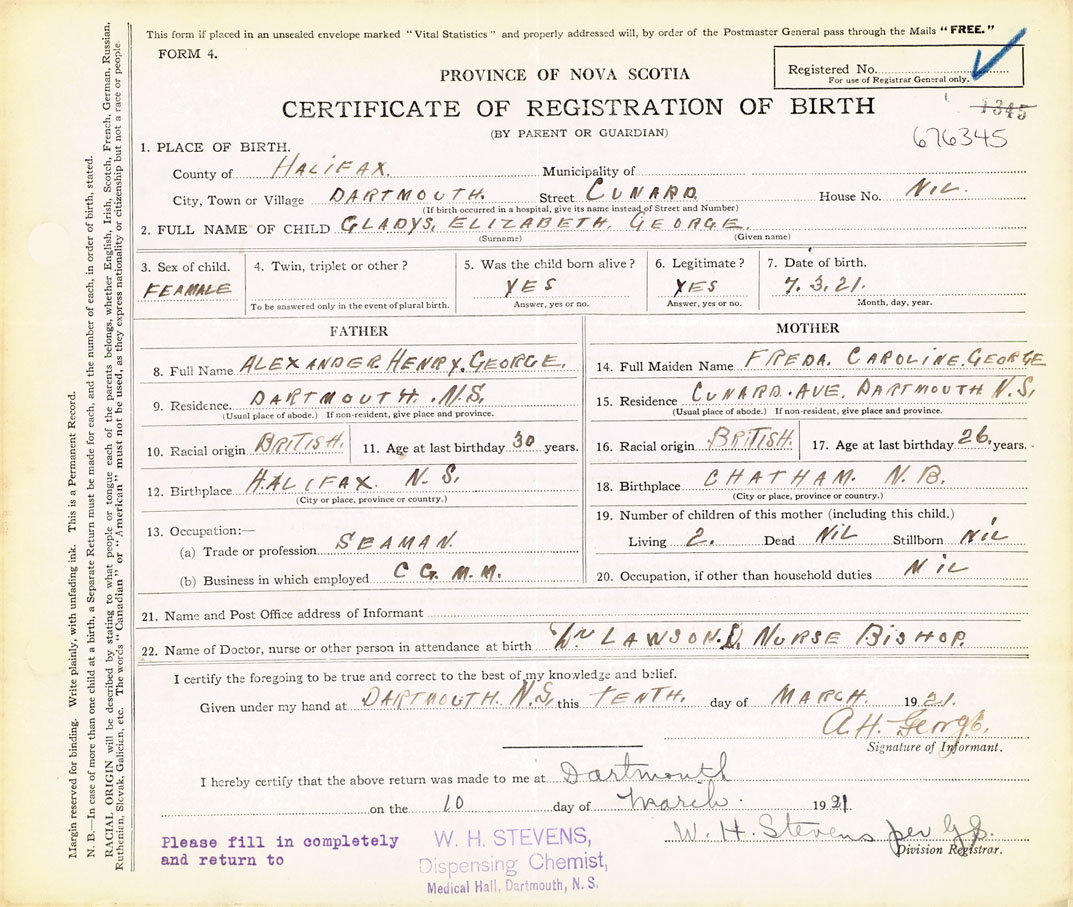 This form if placed in an unsealed envelope marked "Vital Statistics" and properly addressed will, by order of the Postmaster General pass through the Mails "FREE."
FORM 4.
Registered No.
For use of Registrar General only.
PROVINCE OF NOVA SCOTIA
CERTIFICATE OF REGISTRATION OF BIRTH
1345
(BY PARENT OR GUARDIAN)
676345
1. PLACE OF BIRTH.
County of HALIFAX. Municipality of
City, Town or Village DARTMOUTH. Street CUNARD House No. NIL.
(If birth occurred in a hospital, give its name instead of Street and Number)
2. FULL NAME OF CHILD GLADYS, ELIZABETH, GEORGE.
(Surname) (Given name)
3. Sex of child. 4. Twin, triplet or other? 5. Was the child born alive? 6. Legitimate? 7. Date of birth.
FEAMALE YES YES 7.3.21.
To be answered only in the event of plural birth. Answer, yes or no. Answer, yes or no. Month, day, year.
FATHER
8. Full Name ALEXANDER HENRY. GEORGE.
9. Residence. DARTMOUTH. N.S.
(Usual place of abode.) If non-resident, give place and province.
10. Racial origin BRITISH. 11. Age at last birthday 30 years.
12. Birthplace HALIFAX N.S.
(City or place, province or country.)
13. Occupation:—
(a) Trade or profession SEAMAN.
(b) Business in which employed C G. M. M.
MOTHER
14. Full Maiden Name FREDA. CAROLINE. GEORGE
15. Residence CUNARD. AVE, DARTMOUTH N.S,
(Usual place of abode.) If non-resident, give place and province.
16. Racial origin BRITISH. 17. Age at last birthday 26. years.
18. Birthplace CHATHAM. N.B.
(City or place, province or country.)
19. Number of children of this mother (including this child.)
Living 2. Dead NIL Stillborn NIL
20. Occupation, if other than household duties NIL
21. Name and Post Office address of Informant
22. Name of Doctor, nurse or other person in attendance at birth LAWSON. NURSE BISHOP.
I certify the foregoing to be true and correct to the best of my knowledge and belief.
Given under my hand at DARTMOUTH. N.S, this TENTH. day of MARCH. 1921.
A.H. George.
Signature of Informant.
I hereby certify that the above return was made to me at Dartmouth
on the 10 day of March. 1921
W. H. Stevens per
Division Registrar.
Please fill in completely
and return to
W. H. STEVENS,
Dispensing Chemist,
Medical Hall, Dartmouth, N. S.
Margin reserved for binding. Write plainly, with unfading ink. This is a Permanent Record.
N. B.—In case of more than one child at a birth, a Separate Return must be made for each, and the number of each, in order of birth, stated.
RACIAL ORIGIN will be described by stating to what people or tongue each of the parents belongs, whether English, Irish, Scotch, French, German, Russian,
Ruthenien, Slovak, Galician, etc. The words "Canadian" or "American" must not be used, as they express nationality or citizenship but not a race or people.